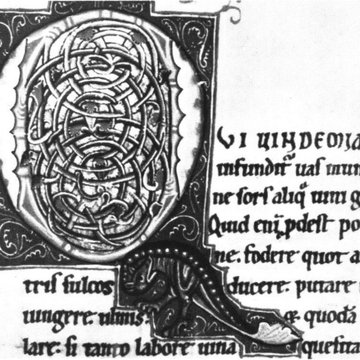 QUI UINDEMIA
infundit᷑ uas mun
ne sors aliq uini g
Quid eni̅ p̲dest po
ne. fodere quot a
tris sulcos ducere. putare
iungere ulmis. & quodā
lare. si tanto labore uina quesita